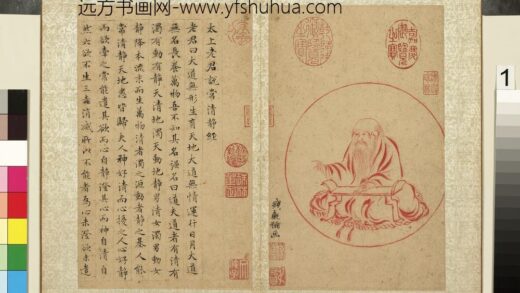 远方书画网-www.yfshuhua.com
太上老君說常清靜經
老君曰大道無形生育天地大道無情運行日月大道
無名長養萬物吾不知其名強名曰道夫道者有清有
濁有動有靜天清地濁天動地靜男清女濁男動女
靜降本流末而生萬物清者濁之源動者靜之基人能
常清靜天地悉皆歸夫人神好清而心擾之人心好靜
而欲牽之常能遣其欲而心自靜澄其心而神自清自
然六欲不生三毒消滅所以不能者為心未澄欲未遣
1